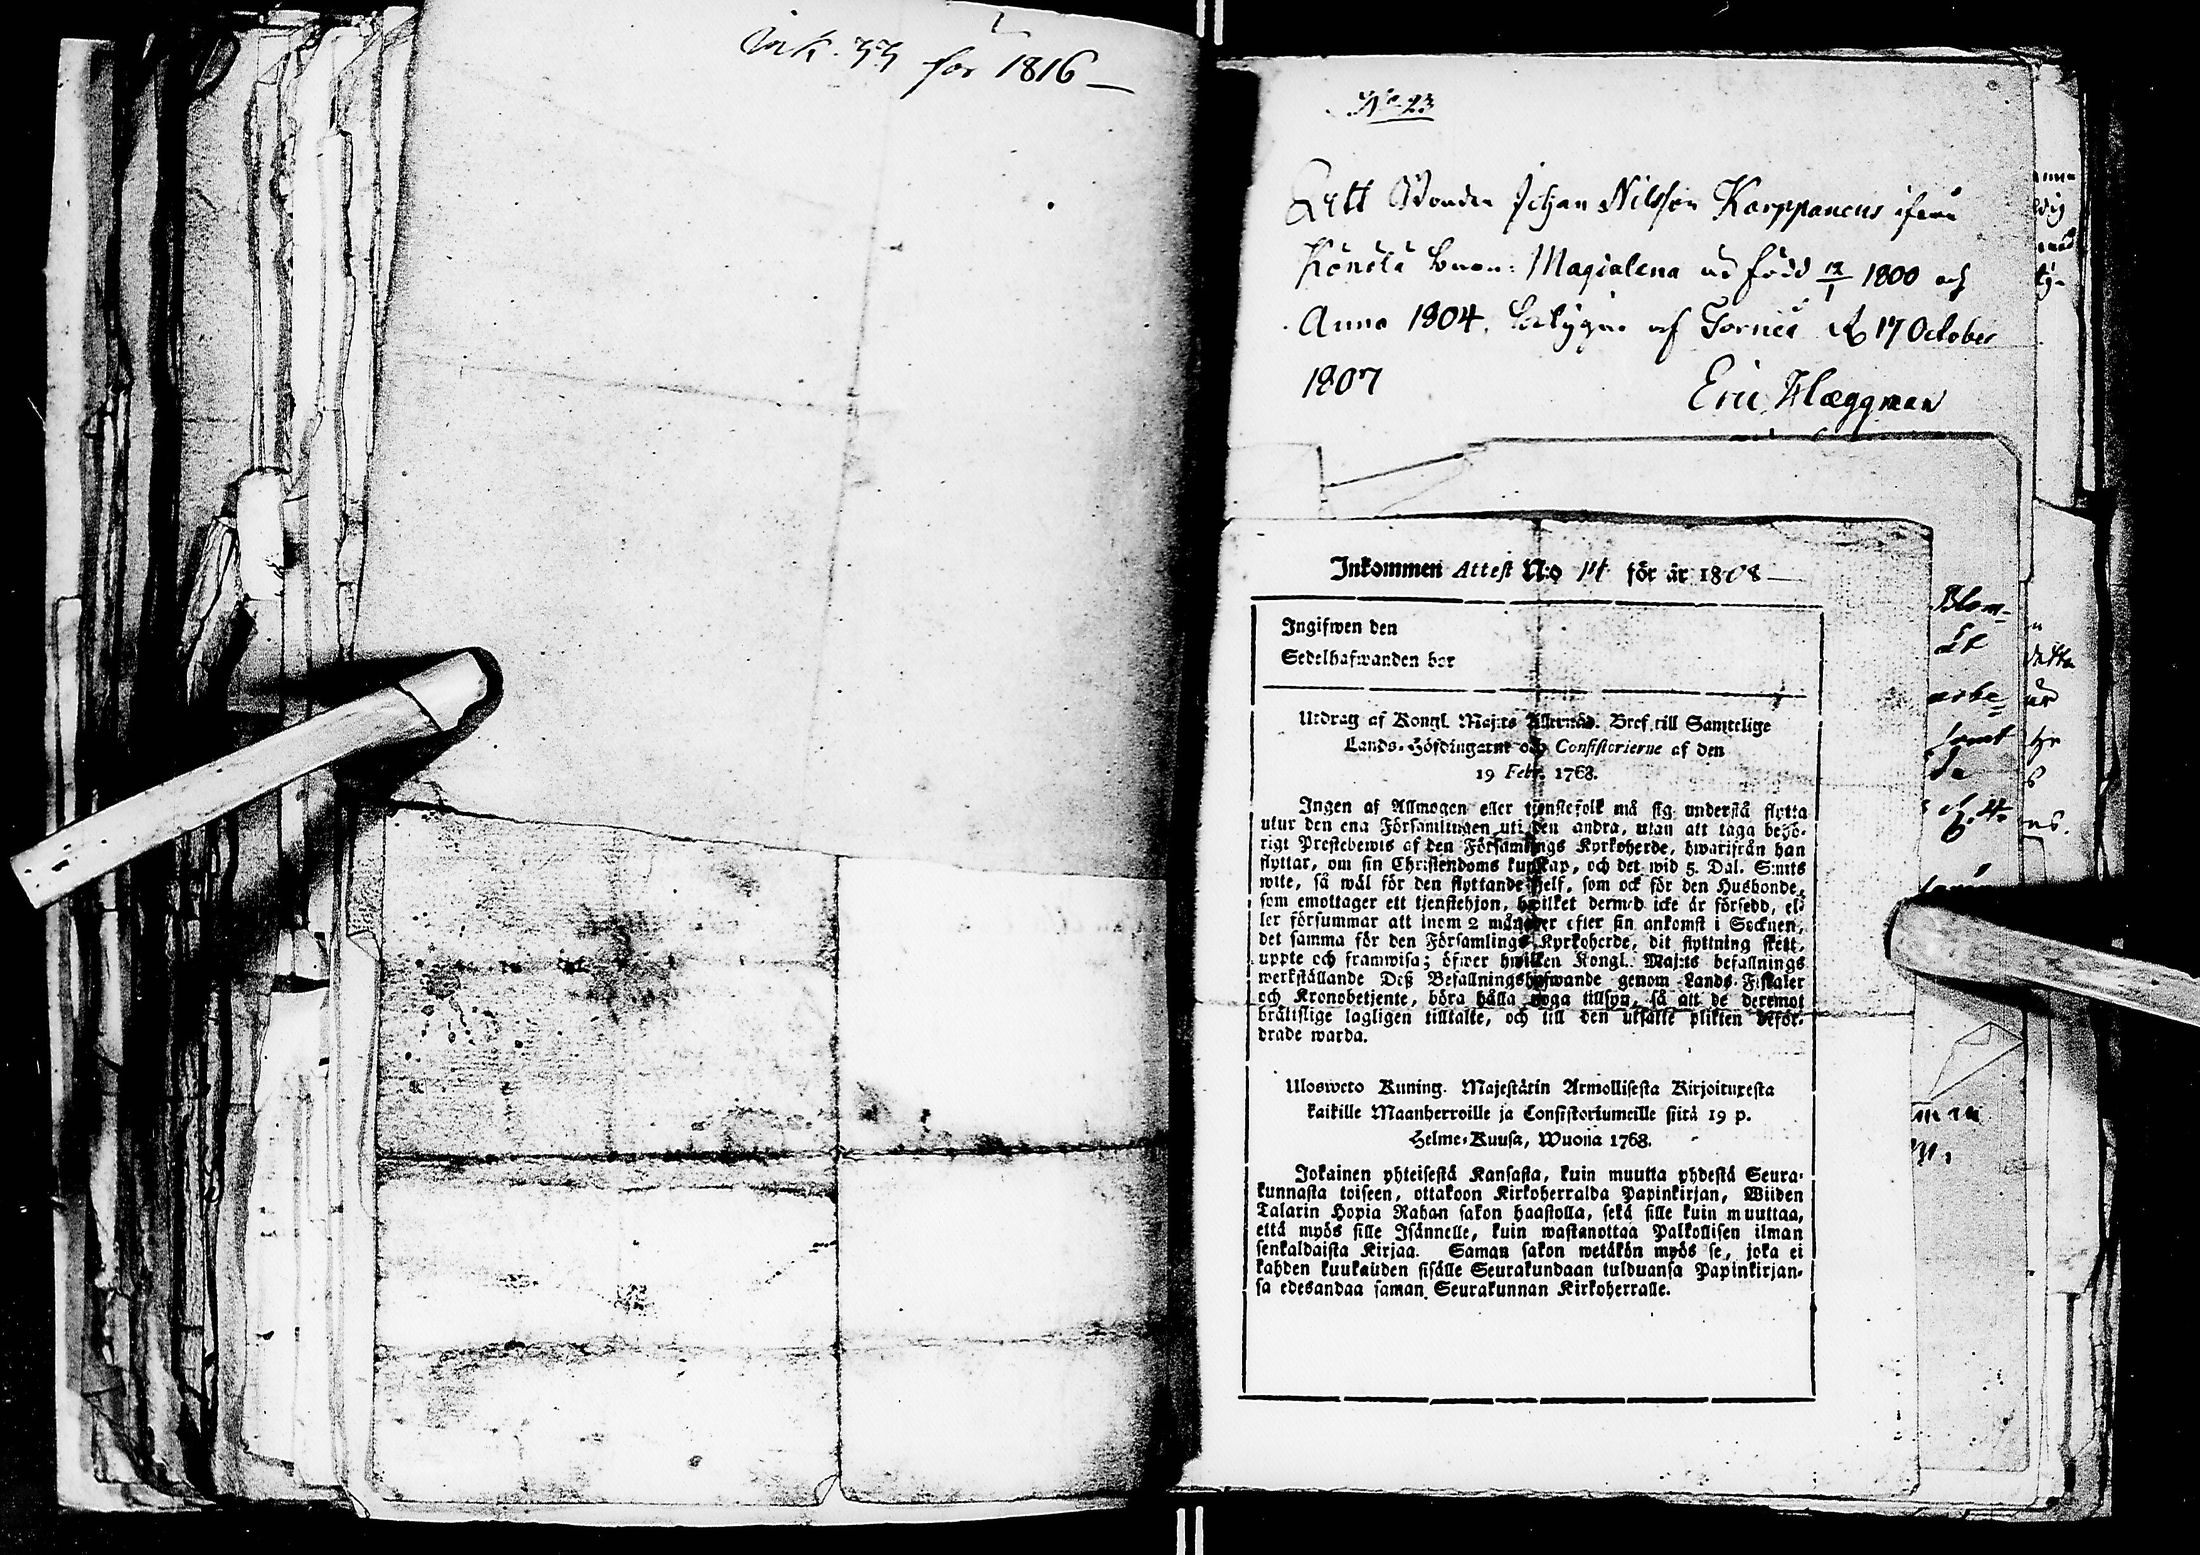 för 1816
No 23
Bonden Johan Nilsson Karppanens ifrån
Magdalena är född 12/1 1800 och
Anno 1804. af Torneå d 17 October
1807
Eric Hæggman
Inkommen Attest N:o för år 1808
Ingifwen den
Sedelhafwanden bor
Utdrag af Kongl. Maj:ts Allernåd. Bref till Samtelige
Lands-Höfdingarne och Consistorierne af den
19 Febr. 1768.
Ingen af Allmogen eller tjenstefolk må sig understå flytta
utur den ena Församlingen uti den andra, utan att taga behö-
rigt Prestebewis af den Församlings Kyrkoherde, hwarifrån han
flyttar, om sin Christendoms kunskap, och det wid 5. Dal. S:mts
wite, så wäl för den flyttande sjelf, som ock för den Husbonde,
som emottager ett tjenstehjon, hwilket dermed icke är försedd, el-
ler försummar att inom 2 månader efter sin ankomst i Socknen,
det samma för den Församlings Kyrkoherde, dit flyttning skett,
uppte och framwisa; öfwer hwilken Kongl. Maj:ts befallnings
werkställande Deß Befallningshafwande genom Lands-Fiskaler
och Kronobetjente, böra hålla noga tillsyn, så att de deremot
brätslige lagligen tilltalte, och till den utfäste plikten befor-
drade warda.
Ulosweto Kuning. Majestätin Armollisesta Kirjoituxesta
kaikille Maanherroille ja Consistoriumeille siitä 19 p.
Helme-Kuusa, Wuona 1768.
Jokainen yhteisestä Kansasta, kuin muutta yhdestä Seura-
kunnasta toiseen, ottakoon Kirkoherralda Papinkirjan, Wiiden
Talarin Hopia Rahan sakon haastolla, sekä sille kuin muuttaa,
että myös sille Isännelle, kuin wastanottaa Palkollisen ilman
senkaldaista Kirjaa. Saman sakon wetäkön myös se, joka ei
kahden kuukauden sisälle Seurakundaan tulduansa Papinkirjan-
sa edesandaa saman Seurakunnan Kirkoherralle.